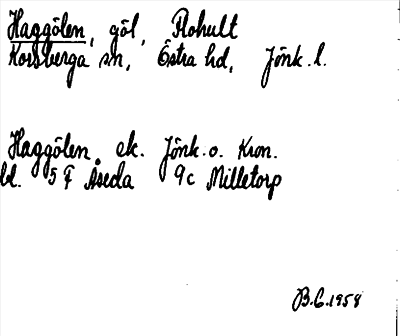 Haggölen, göl, Flohult
Korsberga sn, Östra hd, Jönk. l.
Haggölen. ek. Jönk. o. Kron.
bl. 5 F Åseda 9c Milletorp
B.G. 1958